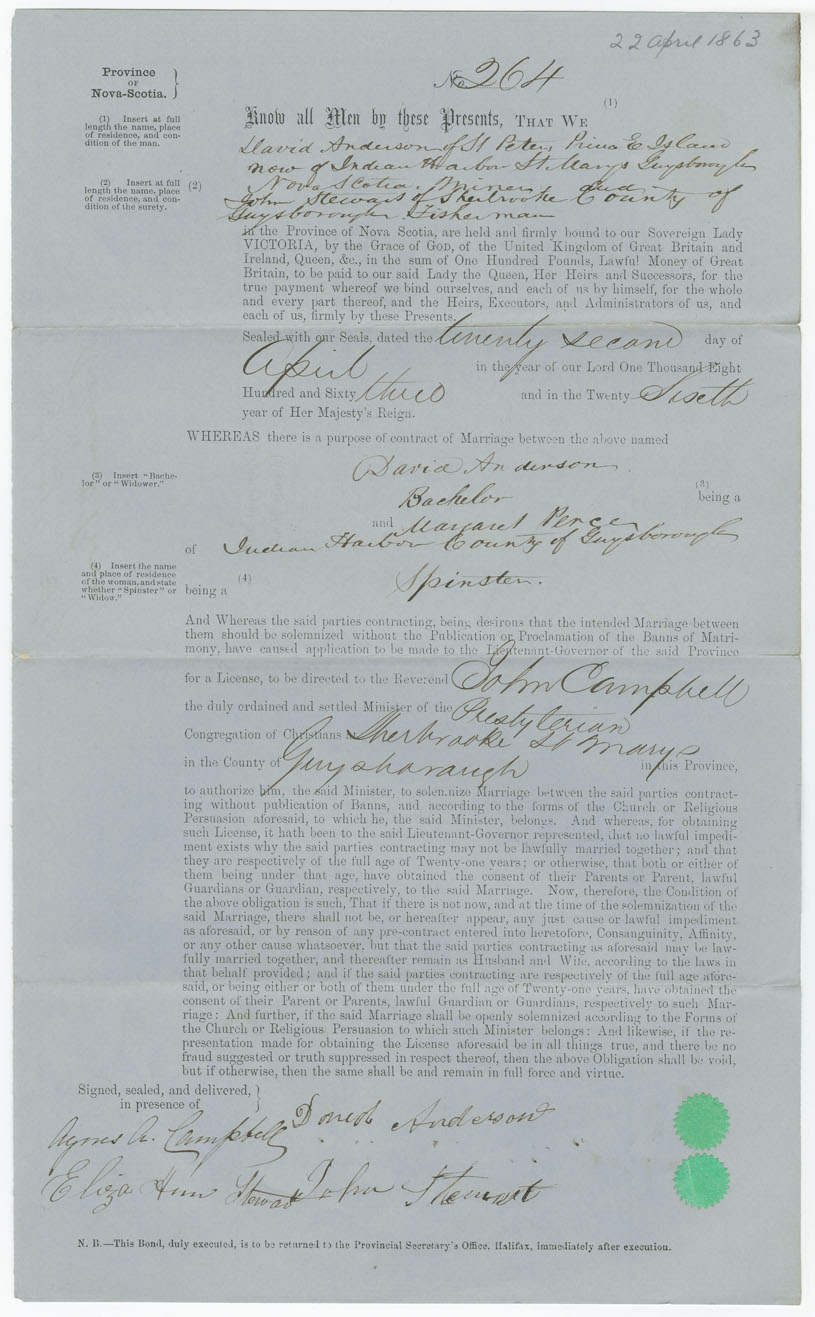 22 April 1863
Province
OF
Nova-Scotia.
No 264
(1)
Know all Men by these Presents, THAT WE
(1) Insert at full
length the name, place
of residence, and con-
dition of the man.
David Anderson of St Peters Prince E Island
now of Indian Harbor St Marys Guysborough
(2) Insert at full
length the name, place
of residence, and con-
dition of the surety.
(2)
Nova Scotia. Miner and
John Stewart of Sherbrooke County of
Guysborough Fisherman
in the Province of Nova Scotia, are held and firmly bound to our Sovereign Lady
VICTORIA, by the Grace of GOD, of the United Kingdom of Great Britain and
Ireland, Queen, &c., in the sum of One Hundred Pounds, Lawful Money of Great
Britain, to be paid to our said Lady the Queen, Her Heirs and Successors, for the
true payment whereof we bind ourselves, and each of us by himself, for the whole
and every part thereof, and the Heirs, Executors, and Administrators of us, and
each of us, firmly by these Presents.
Sealed with our Seals, dated the twenty second day of
April in the year of our Lord One Thousand Eight
Hundred and Sixty three and in the Twenty Sixth
year of Her Majesty's Reign.
WHEREAS there is a purpose of contract of Marriage between the above named
David Anderson
(3) Insert "Bache-
lor" or "Widower."
(3)
Bachelor being a
and Margaret
of Indian Harbor County of Guysborough
(4) Insert the name
and place of residence
of the woman, and state
whether "Spinster" or
"Widow."
(4)
being a Spinster.
And Whereas the said parties contracting, being desirous that the intended Marriage between
them should be solemnized without the Publication or Proclamation of the Banns of Matri-
mony, have caused application to be made to the Lieutenant-Governor of the said Province
for a License, to be directed to the Reverend John Campbell
the duly ordained and settled Minister of the Presbyterian
Congregation of Christians Sherbrooke St Marys
in the County of Guysborough in this Province,
to authorize him, the said Minister, to solemnize Marriage between the said parties contract-
ing without publication of Banns, and according to the forms of the Church or Religious
Persuasion aforesaid, to which he, the said Minister, belongs. And whereas, for obtaining
such License, it hath been to the said Lieutenant-Governor represented, that no lawful impedi-
ment exists why the said parties contracting may not be lawfully married together; and that
they are respectively of the full age of Twenty-one years; or otherwise, that both or either of
them being under that age, have obtained the consent of their Parents or Parent, lawful
Guardians or Guardian, respectively, to the said Marriage. Now, therefore, the Condition of
the above obligation is such, That if there is not now, and at the time of the solemnization of the
said Marriage, there shall not be, or hereafter appear, any just cause or lawful impediment
as aforesaid, or by reason of any pre-contract entered into heretofore, Consanguinity, Affinity,
or any other cause whatsoever, but that the said parties contracting as aforesaid may be law-
fully married together, and thereafter remain as Husband and Wife, according to the laws in
that behalf provided; and if the said parties contracting are respectively of the full age afore-
said, or being either or both of them under the full age of Twenty-one years, have obtained the
consent of their Parent or Parents, lawful Guardian or Guardians, respectively to such Mar-
riage: And further, if the said Marriage shall be openly solemnized according to the Forms of
the Church or Religious Persuasion to which such Minister belongs: And likewise, if the re-
presentation made for obtaining the License aforesaid be in all things true, and there be no
fraud suggested or truth suppressed in respect thereof, then the above Obligation shall be void,
but if otherwise, then the same shall be and remain in full force and virtue.
Signed, sealed, and delivered,
in presence of
Agnes A. Campbell David Anderson
Eliza Stewart John Stewart
N. B.—This Bond, duly executed, is to be returned to the Provincial Secretary's Office, Halifax, immediately after execution.